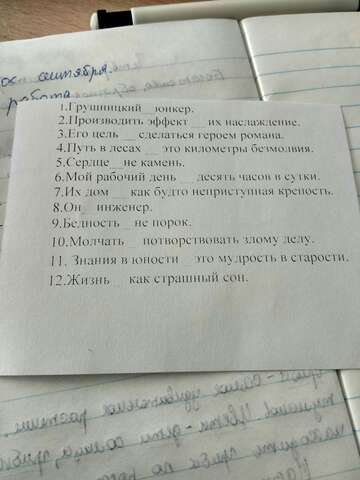 сентября.
работа
1.Грушницкий __юнкер.
2.Производить эффект __ их наслаждение.
3.Его цель __ сделаться героем романа.
4.Путь в лесах __ это километры безмолвия.
5.Сердце __не камень.
6.Мой рабочий день __ десять часов в сутки.
7.Их дом __ как будто неприступная крепость.
8.Он_ инженер.
9.Бедность _ не порок.
10.Молчать _ потворствовать злому делу.
11. Знания в юности _ это мудрость в старости.
12.Жизнь _ как страшный сон.